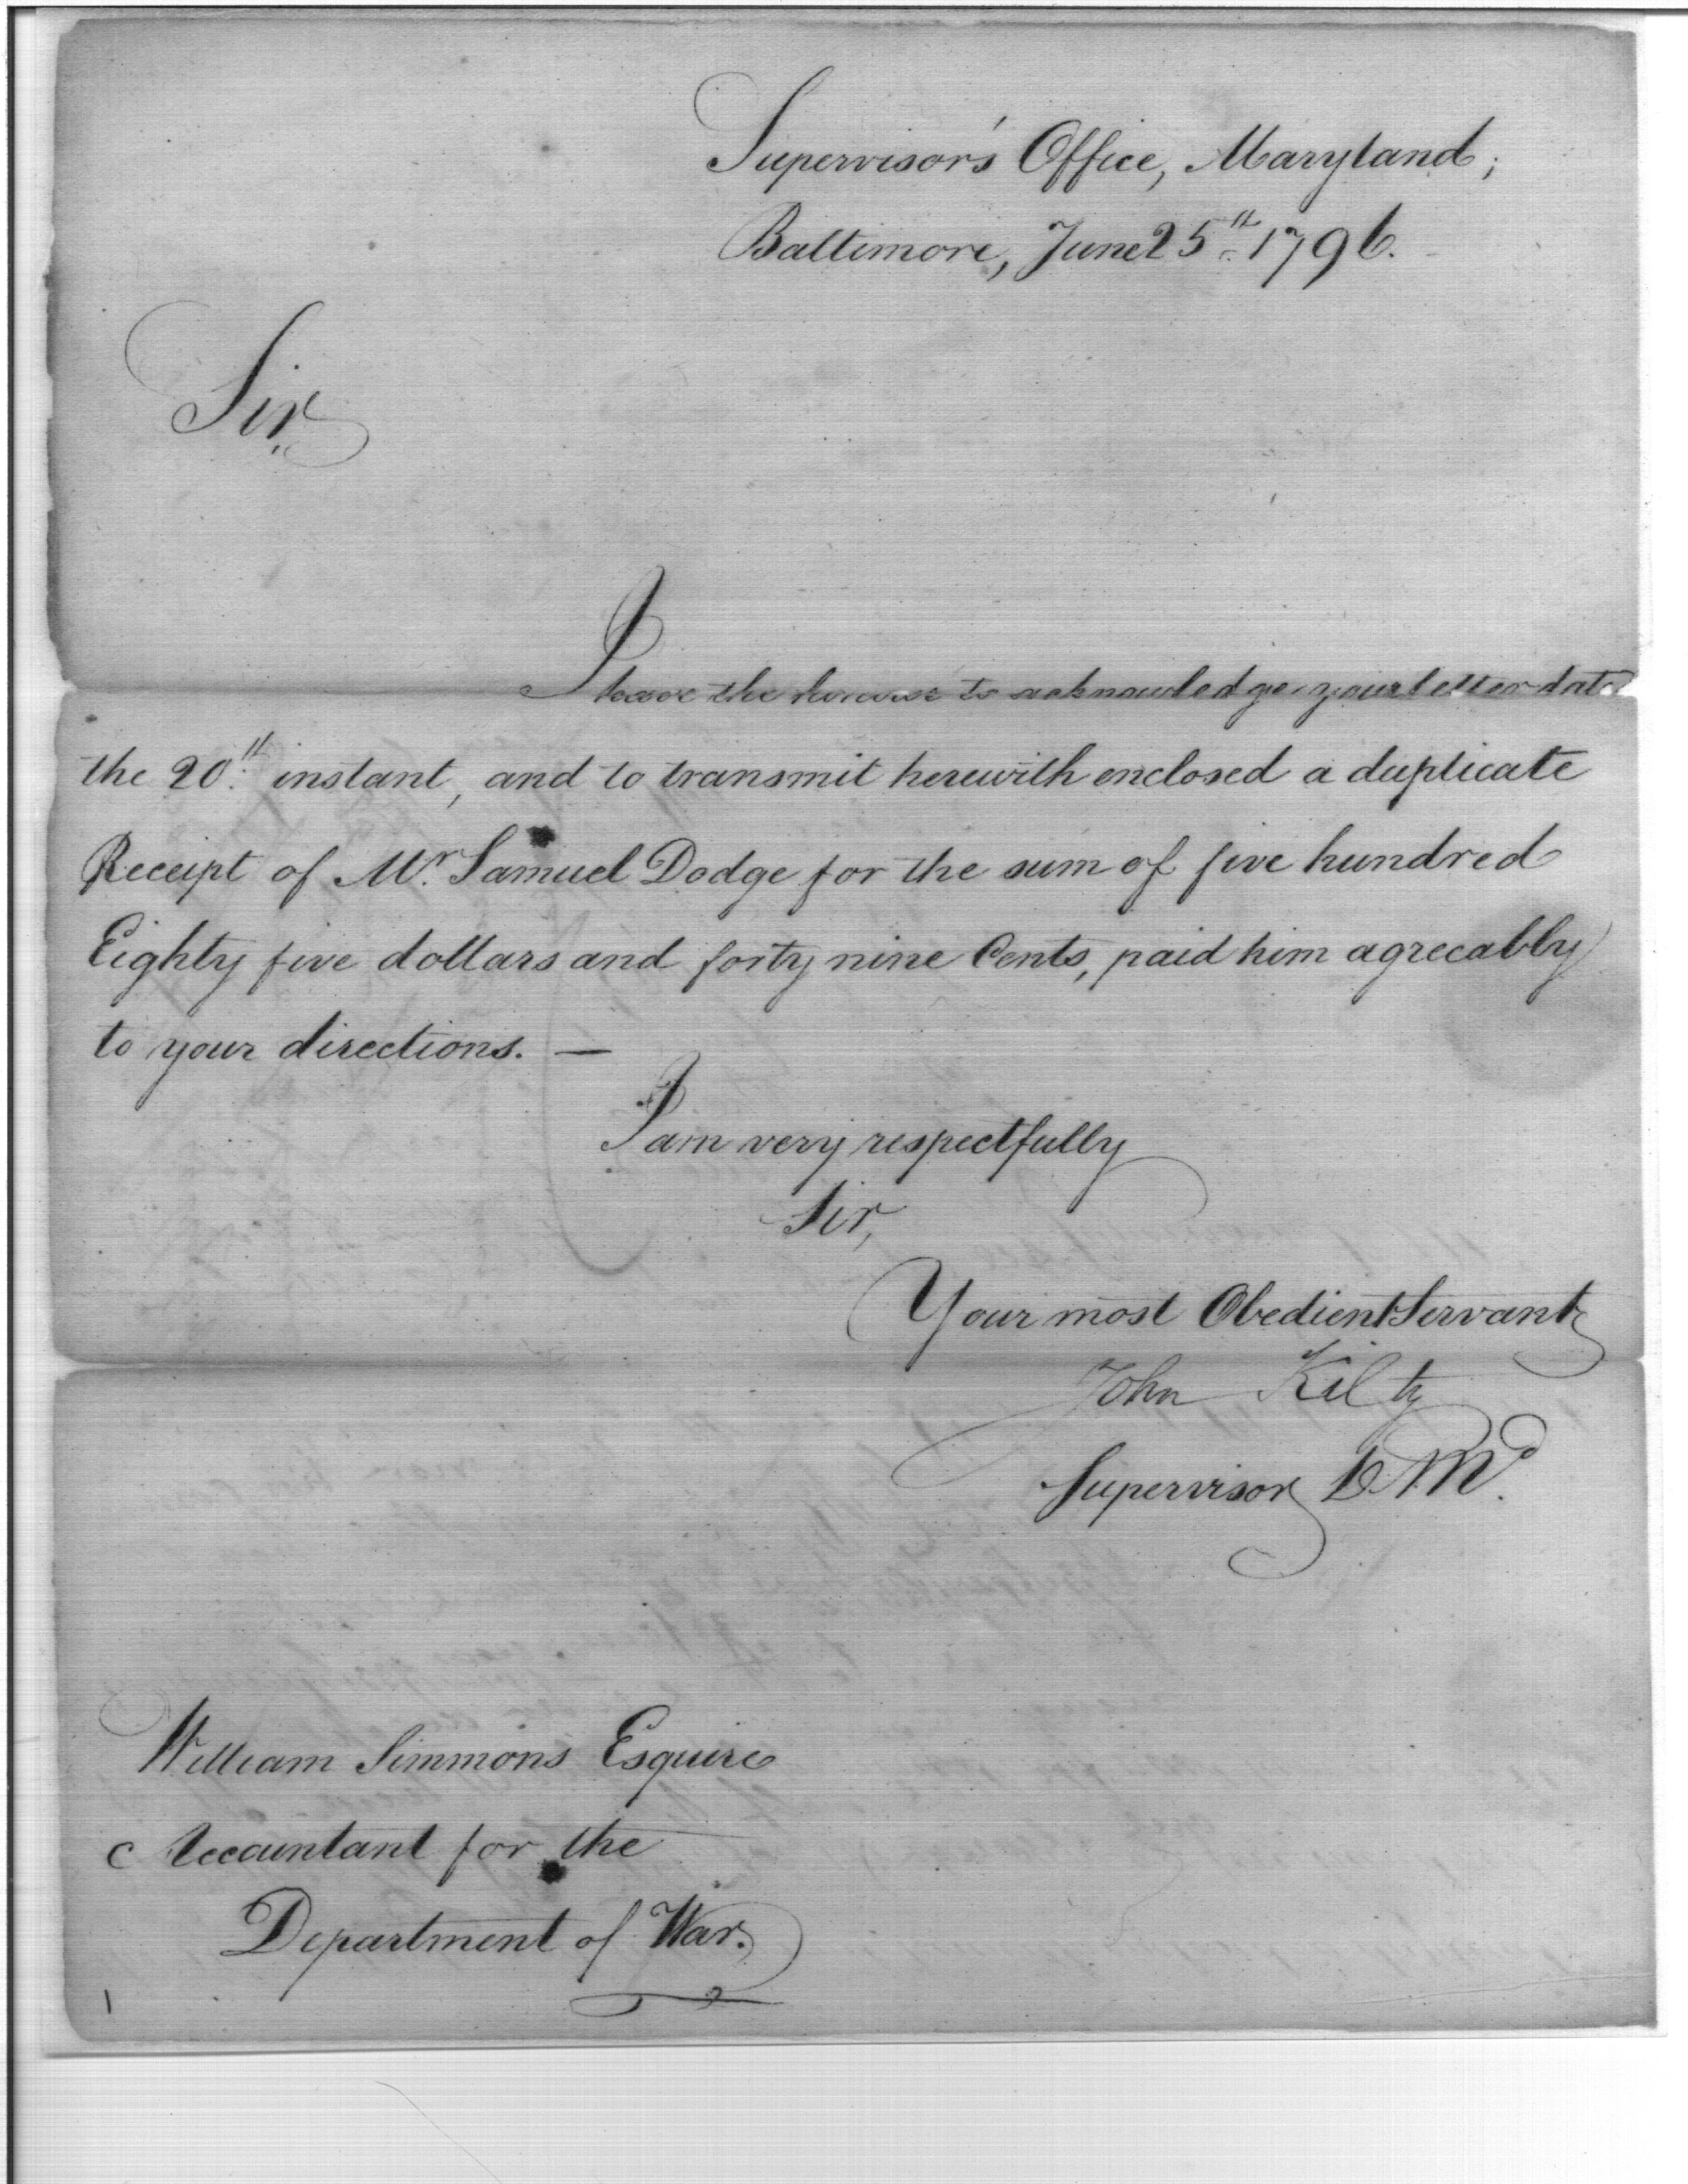 Supervisor's Office, Maryland;
Baltimore, June 25th 1796.
Sir,
I have the honour to acknowledge your letter dated
the 20th instant, and to transmit herewith enclosed a duplicate
Receipt of Mr. Samuel Dodge for the sum of five hundred
Eighty five dollars and forty nine Cents, paid him agreeably
to your directions. —
I am very respectfully
Sir,
Your most Obedient Servant
John Kilty
Supervisor D Md.
William Simmons Esquire
Accountant for the
Department of War.